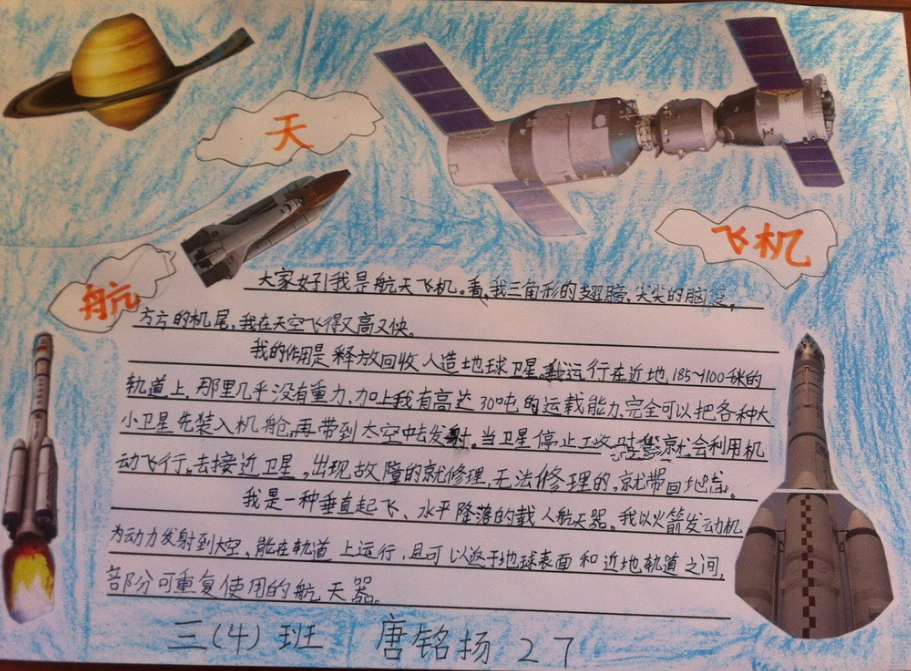 航
天
飞机
大家好!我是航天飞机。看,我三角形的翅膀、尖尖的脑袋、
方方的机尾,我在天空飞得又高又快。
我的作用是释放回收人造地球卫星。我运行在近地185~1100千米的
轨道上,那里几乎没有重力,加上我有高达30吨的运载能力,完全可以把各种大
小卫星先装入机舱,再带到太空中去发射。当卫星停止工作时,就会利用机
动飞行,去接近卫星,出现故障的就修理,无法修理的,就带回地面。
我是一种垂直起飞、水平降落的载人航天器。我以火箭发动机
为动力发射到太空,能在轨道上运行,且可以返于地球表面和近地轨道之间,
部分可重复使用的航天器。
三(4)班 唐铭扬 27